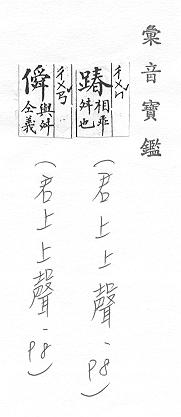 彙音寶鑑
ㄔㄨㄣ
踳 相乖舛也
(君上上聲.P8)
ㄔㄨㄢ
僢 與舛仝義
(君上上聲.P8)